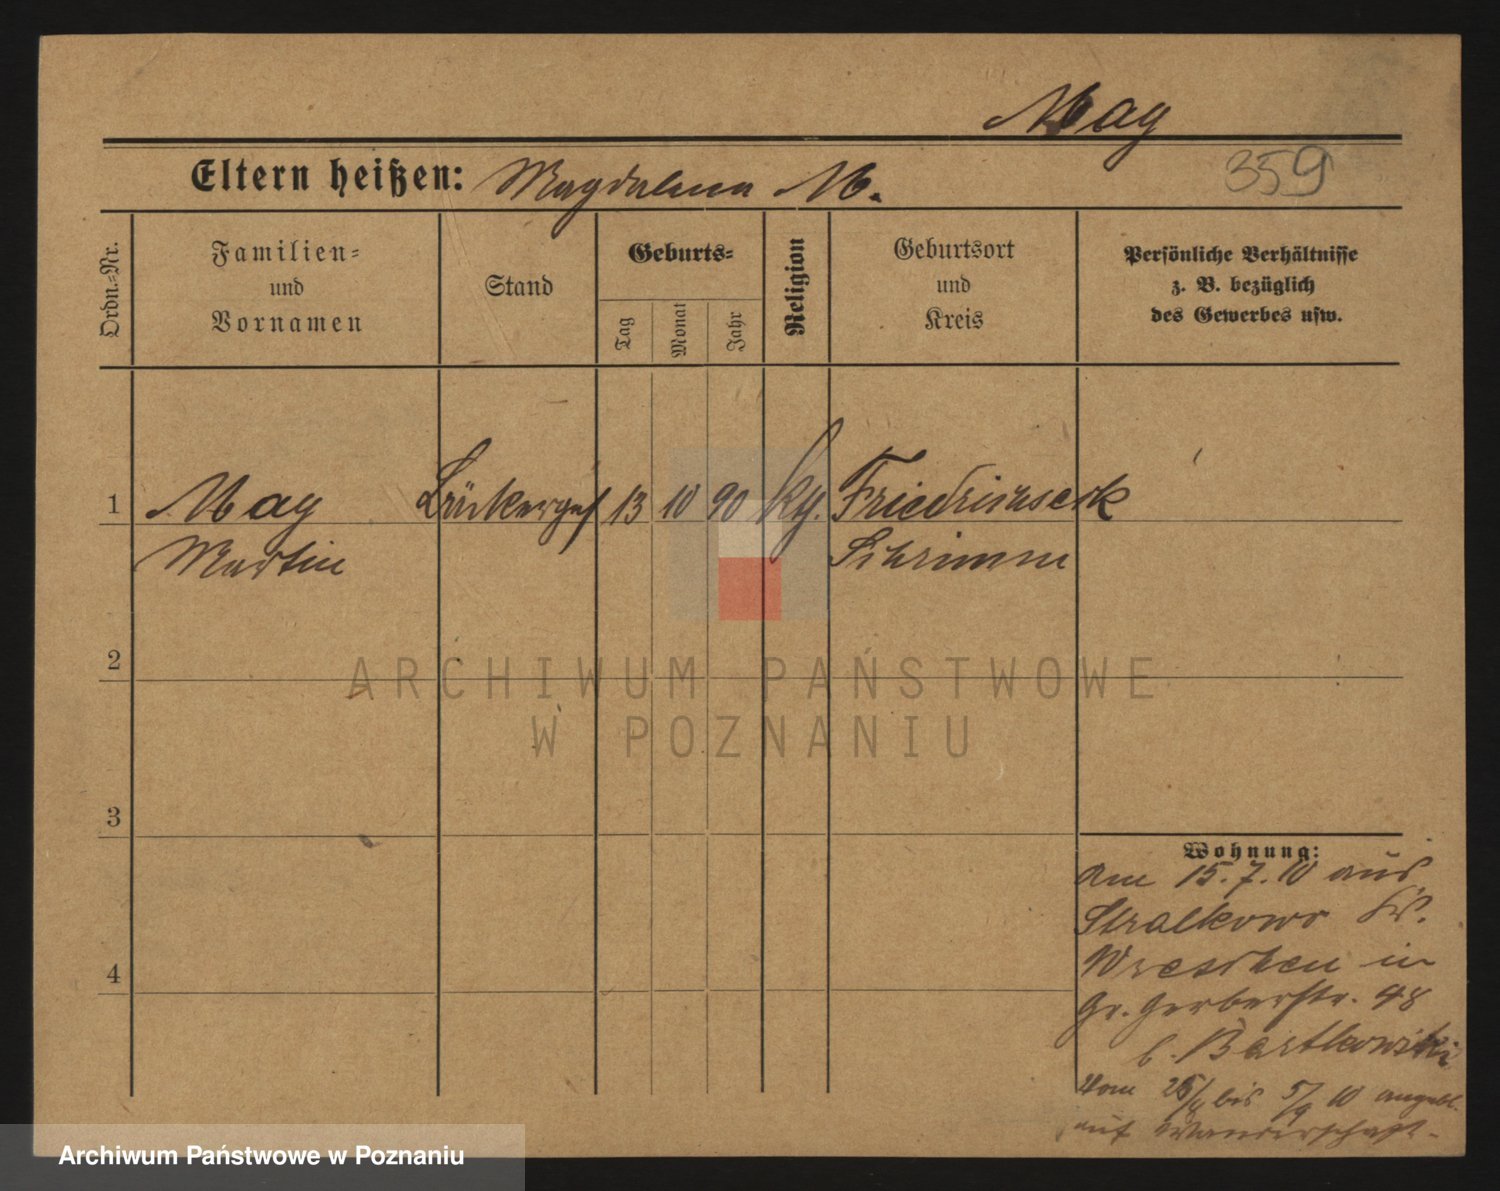 May
Eltern heißen: Magdalena M.
359
Ordn.=Nr.
Familien=
und
Vornamen
Stand
Geburts=
Tag
Monat
Jahr
Religion
Geburtsort
und
Kreis
Persönliche Verhältnisse
z. B. bezüglich
des Gewerbes usw.
1 May Bäckerges 13 10 90 kg. Friedrichseck
Martin Schrimm
2
3
4
Wohnung:
Am 15.7.10 aus
Stralkowo Kr.
Wreschen in
Gr. Gerberstr. 48
b. Bartkowski
Vom bis 5/9 10 angebl.
auf Wanderschaft.
ARCHIWUM PAŃSTWOWE
W POZNANIU
Archiwum Państwowe w Poznaniu